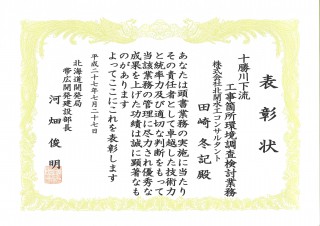 表彰状
十勝川下流
工事箇所環境調査検討業務
株式会社北開水工コンサルタント
田崎冬記殿
あなたは頭書業務の実施に当たり
その責任者として卓越した技術力
と統率力及び適切な判断をもって
当該業務の管理に尽力され優秀な
成果を上げた功績は誠に顕著なも
のがあります
よってここにこれを表彰します
平成二十七年七月二十七日
北海道開発局
帯広開発建設部長
河畑俊明